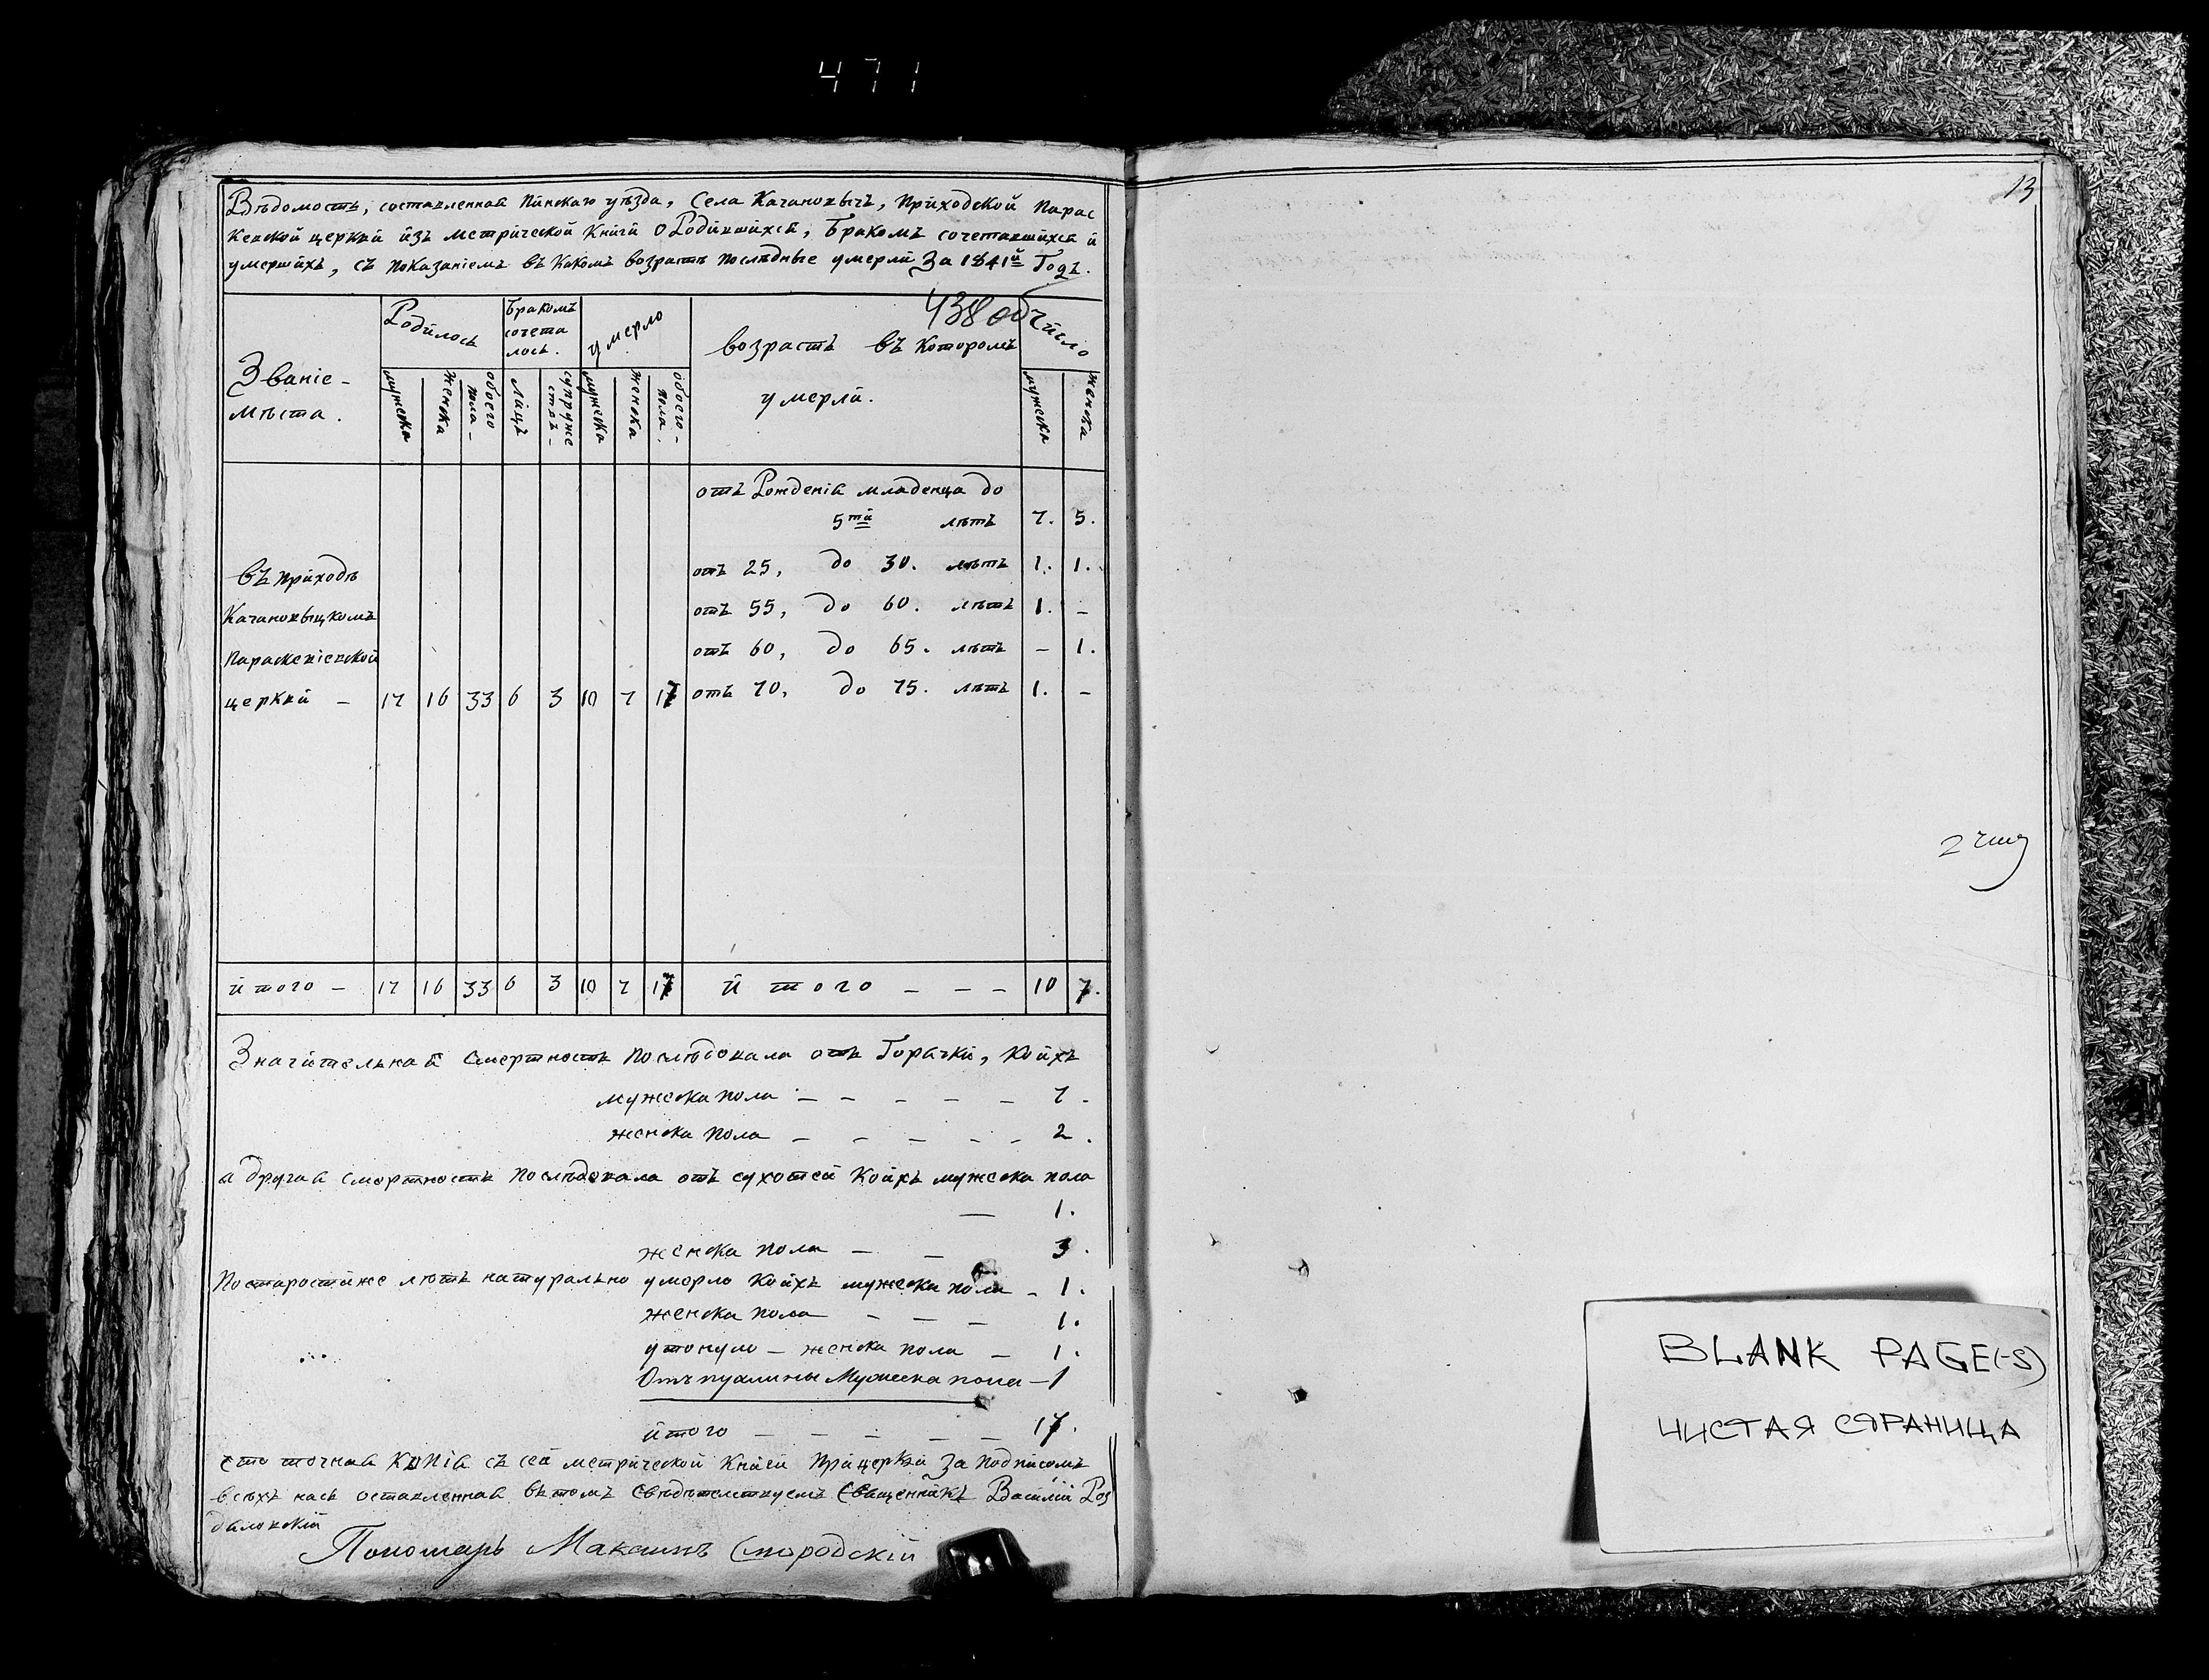 471
Вѣдомость, составленная Пинскаго уѣзда, Села Качановычъ, Приходской Парас
кевской церкви изъ метрической книги о Родившихся, Бракомъ сочетавшихся и
умершихъ, съ показаніемъ въ какомъ возрастѣ послѣдные умерли За 1841й Годъ.
438 об
Званіе -
мѣста.
Родилось
Бракомъ
сочета
лось.
умерло
возрастъ въ которомъ
умерли.
Число
мужеска
женска
обоего
пола -
Лицъ
супруже
ствъ -
мужеска
женска
обоего -
пола.
мужеска
женска
отъ Рожденія младенца до
5ти лѣтъ 7. 5.
въ приходѣ
отъ 25, до 30. лѣтъ 1. 1.
Качановыцкомъ
отъ 55, до 60. лѣтъ 1. -
Параскевіевской
отъ 60, до 65. лѣтъ - 1.
церкви - 17 16 33 6 3 10 7 17 отъ 70, до 75. лѣтъ 1. -
итого - 17 16 33 6 3 10 7 17 итого - - - 10 7.
Значительная смертность послѣдовала отъ Горячки, коихъ
мужеска пола - - - - - 7.
женска пола - - - - - 2.
а другая смертность послѣдовала отъ сухотей коихъ мужеска пола
- 1.
женска пола - - 3.
По старости же лѣтъ натурально умерло коихъ мужеска пола - 1.
женска пола - - - 1.
утонуло - женска пола - 1.
Отъ пухлины Мужеска пола - 1
итого - - - - - 17.
что точная копія съ сей метрической книги при церкви за подписомъ
всѣхъ насъ оставленная въ томъ свидѣтелствуемъ Священникъ Василій Роз
даловскій
Пономарь Максимъ Смородскій
13
2 чист
BLANK PAGE(-S)
ЧИСТАЯ СТРАНИЦА